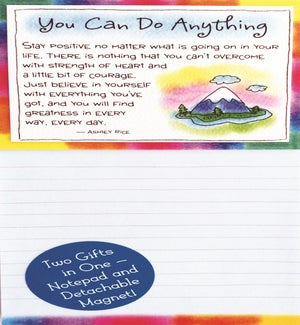 You Can Do Anything
Stay positive no matter what is going on in your
life. There is nothing that you can't overcome
with strength of heart and
a little bit of courage.
Just believe in yourself
with everything you've
got, and you will find
greatness in every
way, every day.
— Ashley Rice
Two Gifts
in One —
Notepad and
Detachable
Magnet!